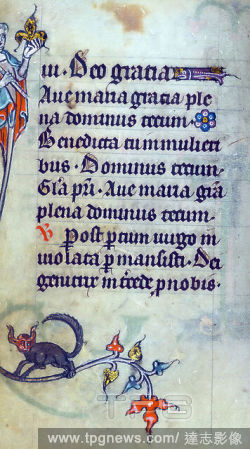 iii. Deo gracia
Aue maria gracia ple
na dominus tecum.
Benedicta tu in mulieri
bus. Dominus tecum.
Gr̃a pr̃i. Aue maria gr̃a
plena dominus tecum.
R Post partum uirgo in
uiolata permansisti. Dei
genitrix intercede p nobis.
TPG
www.tpgnews.com/ 達志影像